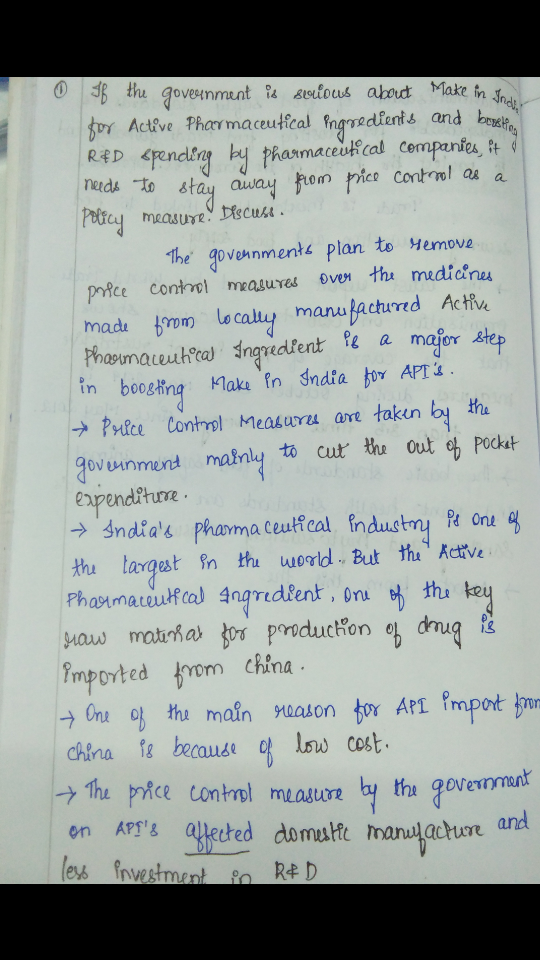 ① If the government is serious about Make in India
for Active Pharmaceutical ingredients and boosting
R&D spending by pharmaceutical companies, it
needs to stay away from price control as a
policy measure. Discuss.
The governments plan to remove
price control measures over the medicines
made from locally manufactured Active
Pharmaceutical Ingredient is a major step
in boosting Make in India for API's.
→ Price Control Measures are taken by the
government mainly to cut the out of pocket
expenditure.
→ India's pharmaceutical industry is one of
the largest in the world. But the Active
Pharmaceutical Ingredient, one of the key
raw material for production of drug is
imported from china.
→ One of the main reason for API import from
china is because of low cost.
→ The price control measure by the government
on API's affected domestic manufacture and
less investment in R&D